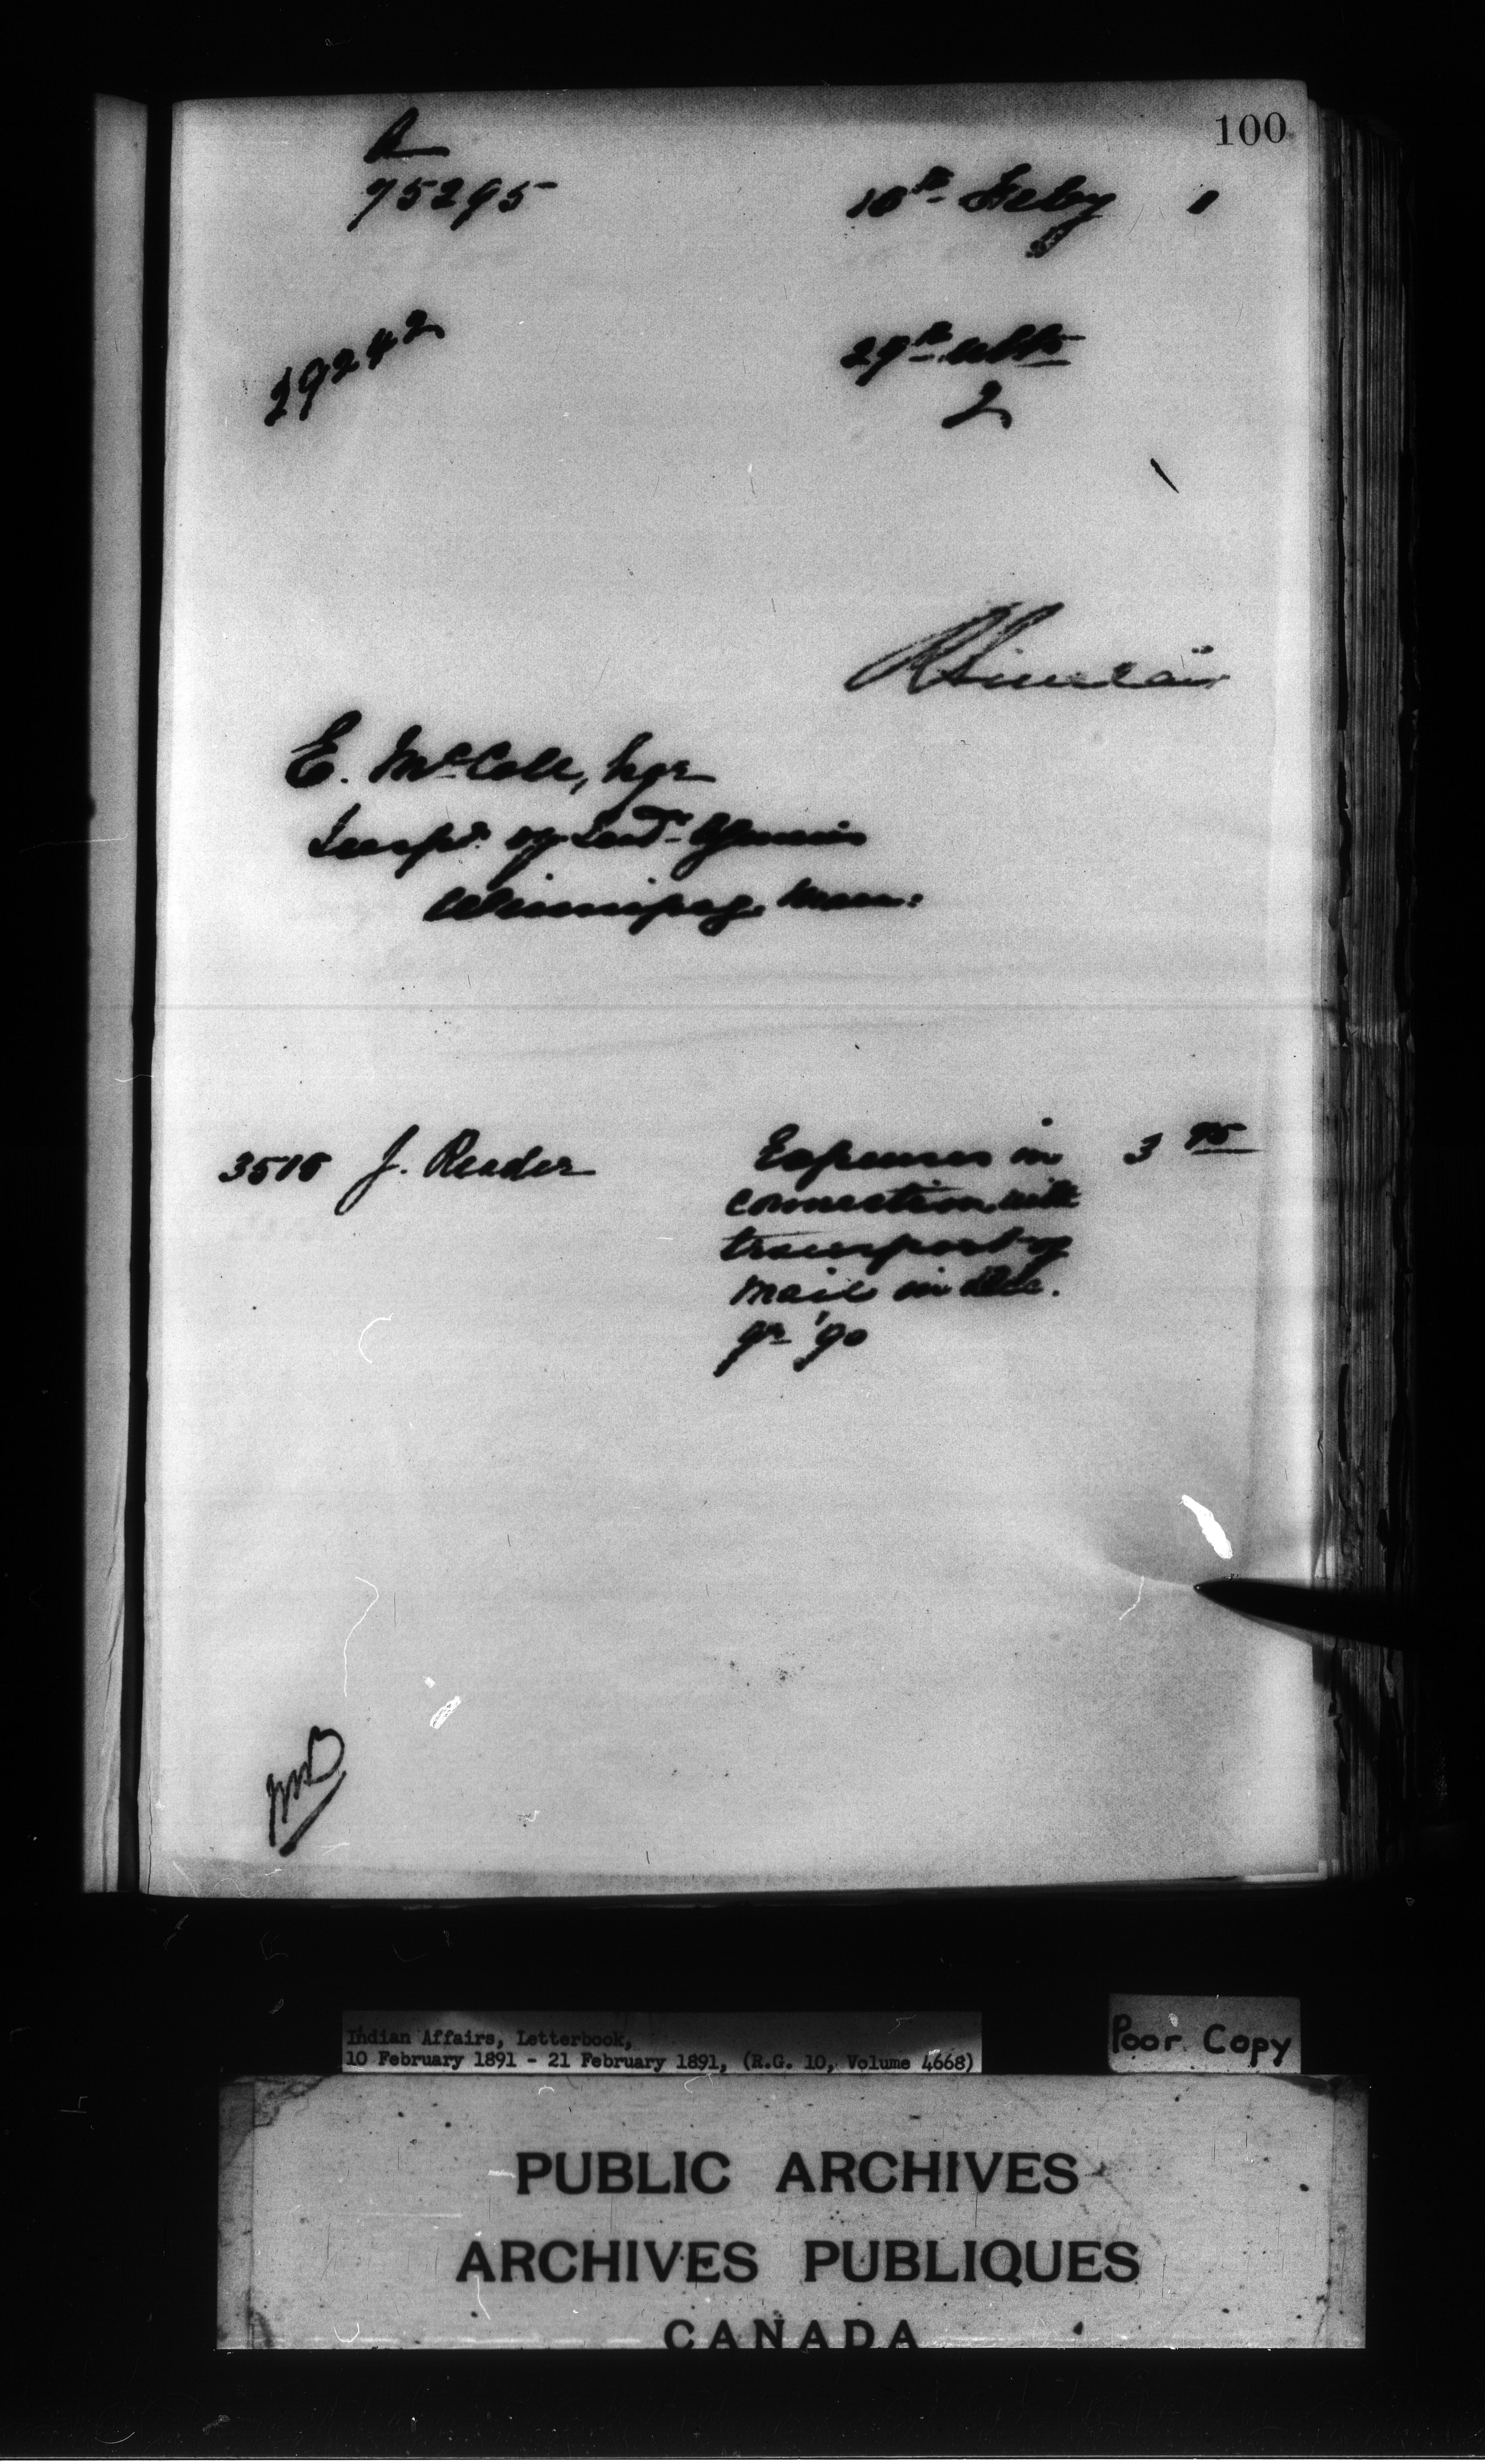 100
A
75295
10th Feby 1
29242
29th ulto
2
R Sinclair
E. McColl, Esqr
Inspr. of Ind. Agencies
Winnipeg, Man:
3515 J. Reader Expenses in 3 75
connection with
transport of
mail in Dec.
qr '90
Indian Affairs, Letterbook,
10 February 1891 - 21 February 1891, (R.G. 10, Volume 4668)
Poor Copy
PUBLIC ARCHIVES
ARCHIVES PUBLIQUES
CANADA